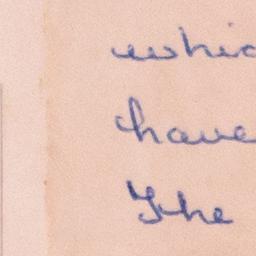 whic
have
The